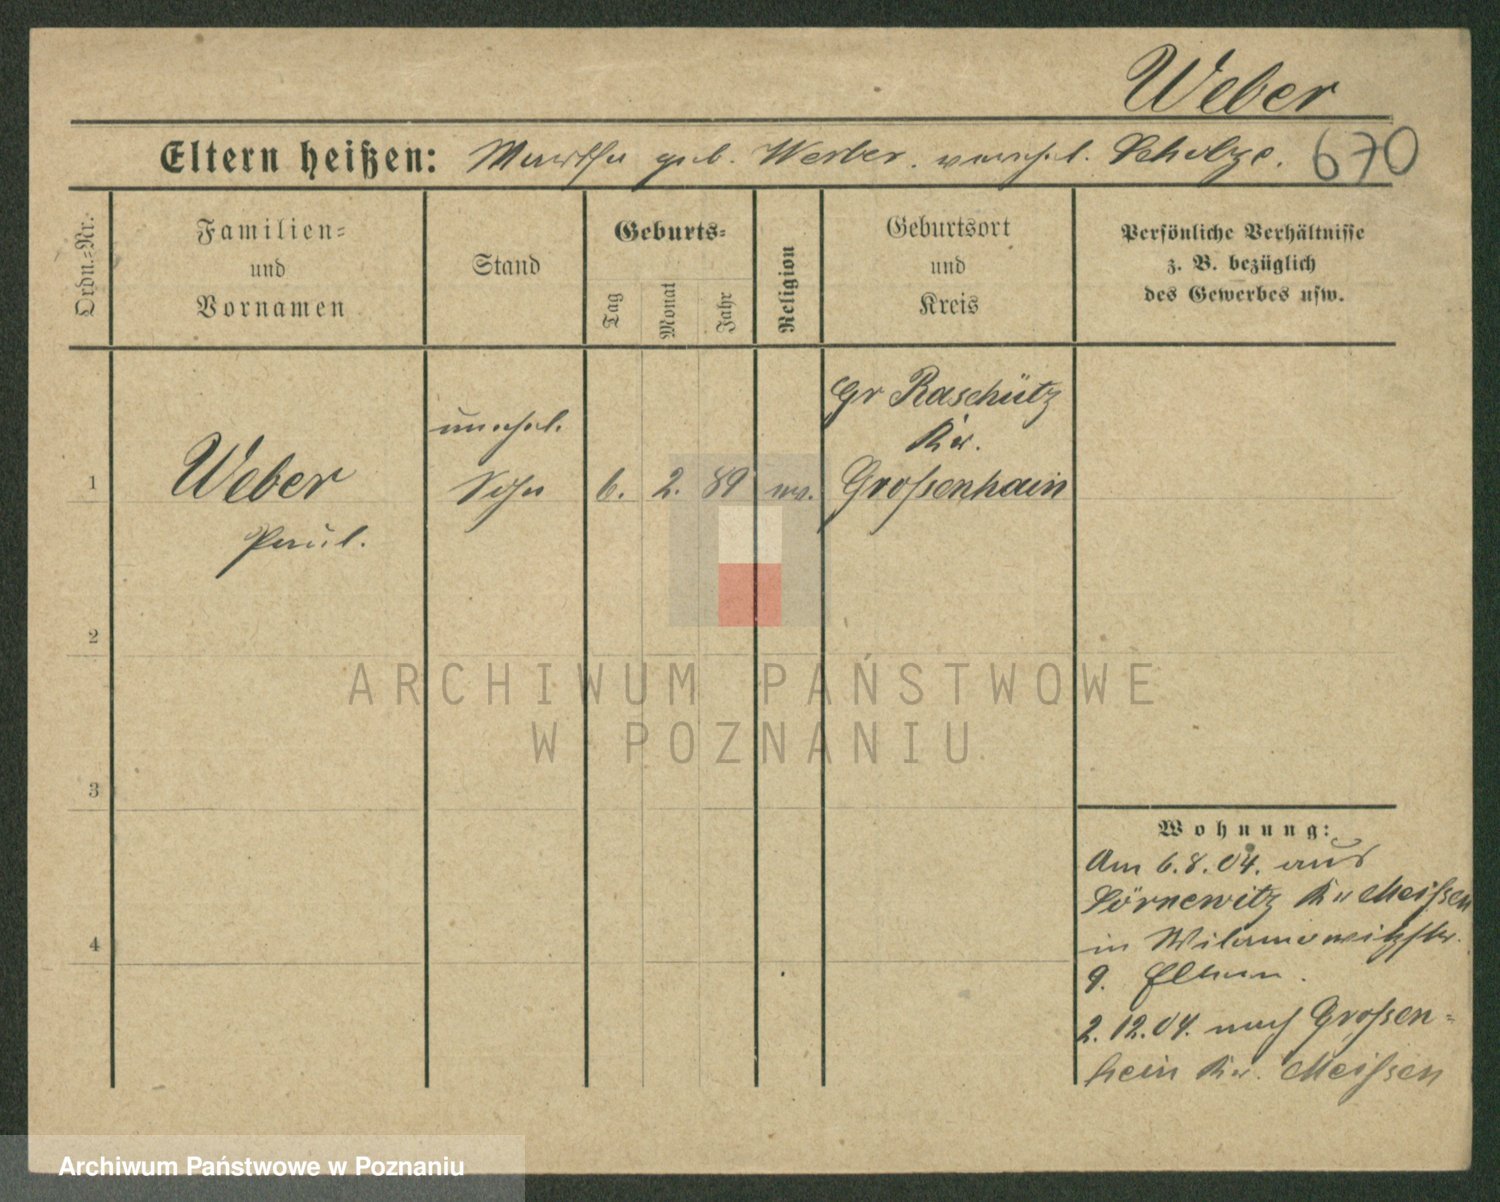 Weber
Eltern heißen: Martha geb. Weber. verehel. Scholze.
670
Ordn.-Nr.
Familien-
und
Vornamen
Stand
Geburts-
Tag
Monat
Jahr
Religion
Geburtsort
und
Kreis
Persönliche Verhältnisse
z. B. bezüglich
des Gewerbes usw.
1
Weber
Paul.
unehel.
Sohn
6. 2. 89
ev.
Gr Raschütz
Kr.
Großenhain
2
3
4
Wohnung:
Am 6.8.04. aus
Sörnewitz Kr Meißen
in Wilamowitzstr.
9. Eltern.
2.12.04. nach Großen-
hein Kr. Meißen
ARCHIWUM PAŃSTWOWE
W POZNANIU
Archiwum Państwowe w Poznaniu